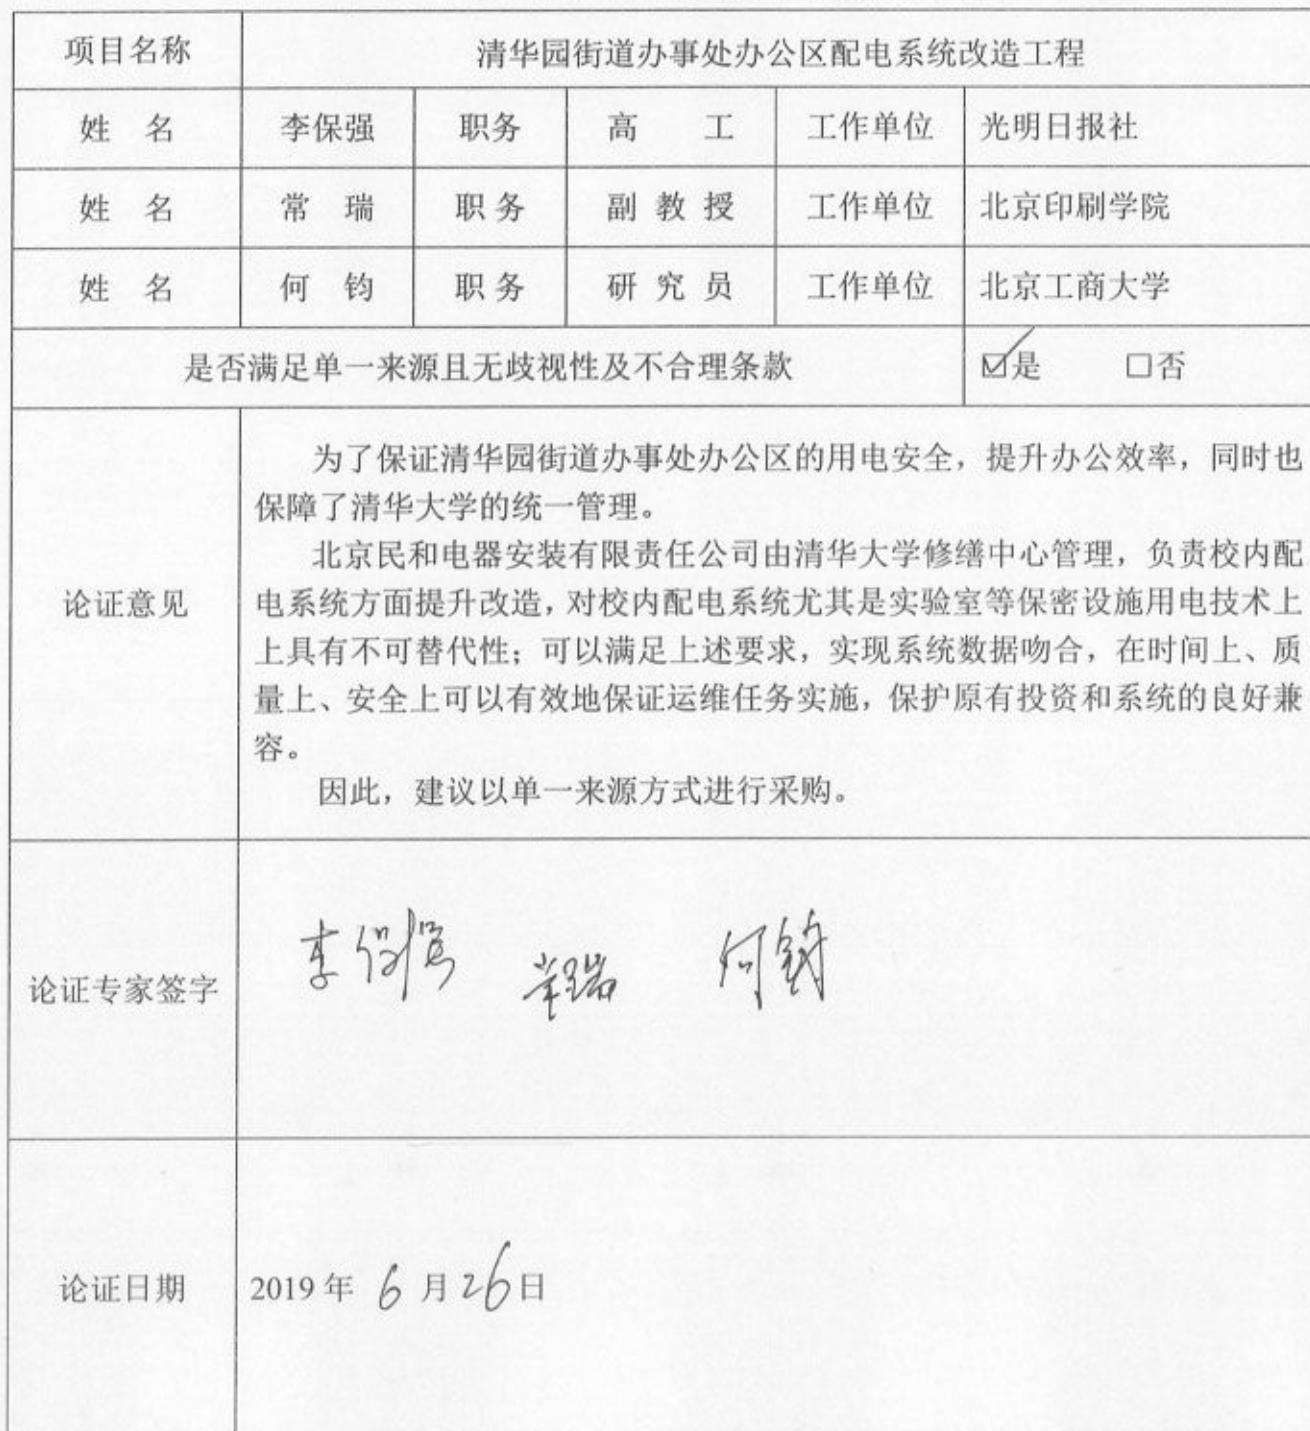 项目名称 清华园街道办事处办公区配电系统改造工程
姓 名 李保强 职务 高 工 工作单位 光明日报社
姓 名 常 瑞 职 务 副 教 授 工作单位 北京印刷学院
姓 名 何 钧 职 务 研 究 员 工作单位 北京工商大学
是否满足单一来源且无歧视性及不合理条款 ☑是 □否
为了保证清华园街道办事处办公区的用电安全，提升办公效率，同时也
保障了清华大学的统一管理。
北京民和电器安装有限责任公司由清华大学修缮中心管理，负责校内配
论证意见
电系统方面提升改造，对校内配电系统尤其是实验室等保密设施用电技术上
上具有不可替代性；可以满足上述要求，实现系统数据吻合，在时间上、质
量上、安全上可以有效地保证运维任务实施，保护原有投资和系统的良好兼
容。
因此，建议以单一来源方式进行采购。
论证专家签字 李保强 常瑞 何钧
论证日期 2019 年 6 月 26 日